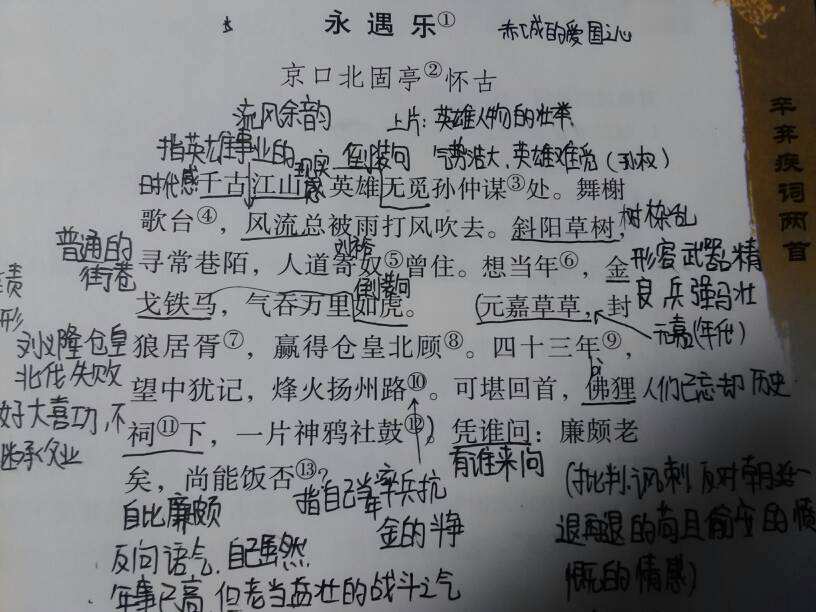 永遇乐①
赤忱的爱国之心
京口北固亭②怀古
流风余韵
上片：英雄人物的壮举
指英雄事业的
现实感
倒装句
气势浩大，英雄难觅（孙权）
时代感
千古江山 英雄无觅孙仲谋③处。舞榭
歌台④，风流总被雨打风吹去。斜阳草树，
树杂乱
普通的
街巷
刘裕
寻常巷陌，人道寄奴⑤曾住。想当年⑥，金
形容武器精
良 兵强马壮
倒装句
戈铁马，气吞万里如虎。 元嘉草草，封
元嘉(年代)
刘义隆仓皇
北伐失败
狼居胥⑦，赢得仓皇北顾⑧。四十三年⑨，
bì
望中犹记，烽火扬州路⑩。可堪回首，佛狸
人们已忘却历史
好大喜功，不
祠⑪下，一片神鸦社鼓⑫。凭谁问：廉颇老
有谁来问
矣，尚能饭否⑬？
指自己当年率兵抗
金的斗争
自比廉颇
反问语气，自己虽然
年事已高，但老当益壮的战斗之气
(批判、讽刺、反对朝廷一
退再退的苟且偷安的愤
慨的情感)
辛弃疾词两首